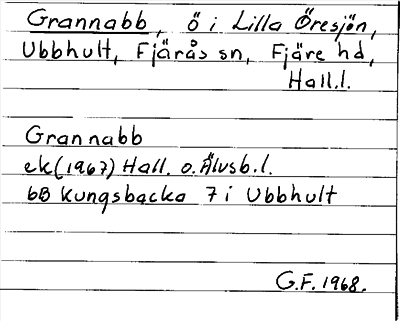 Grannabb, ö i Lilla Öresjön,
Ubbhult, Fjärås sn, Fjäre hd,
Hall.l.
Grannabb
ek(1967) Hall. o. Älvsb.l.
6B Kungsbacka 7 i Ubbhult
G.F. 1968.